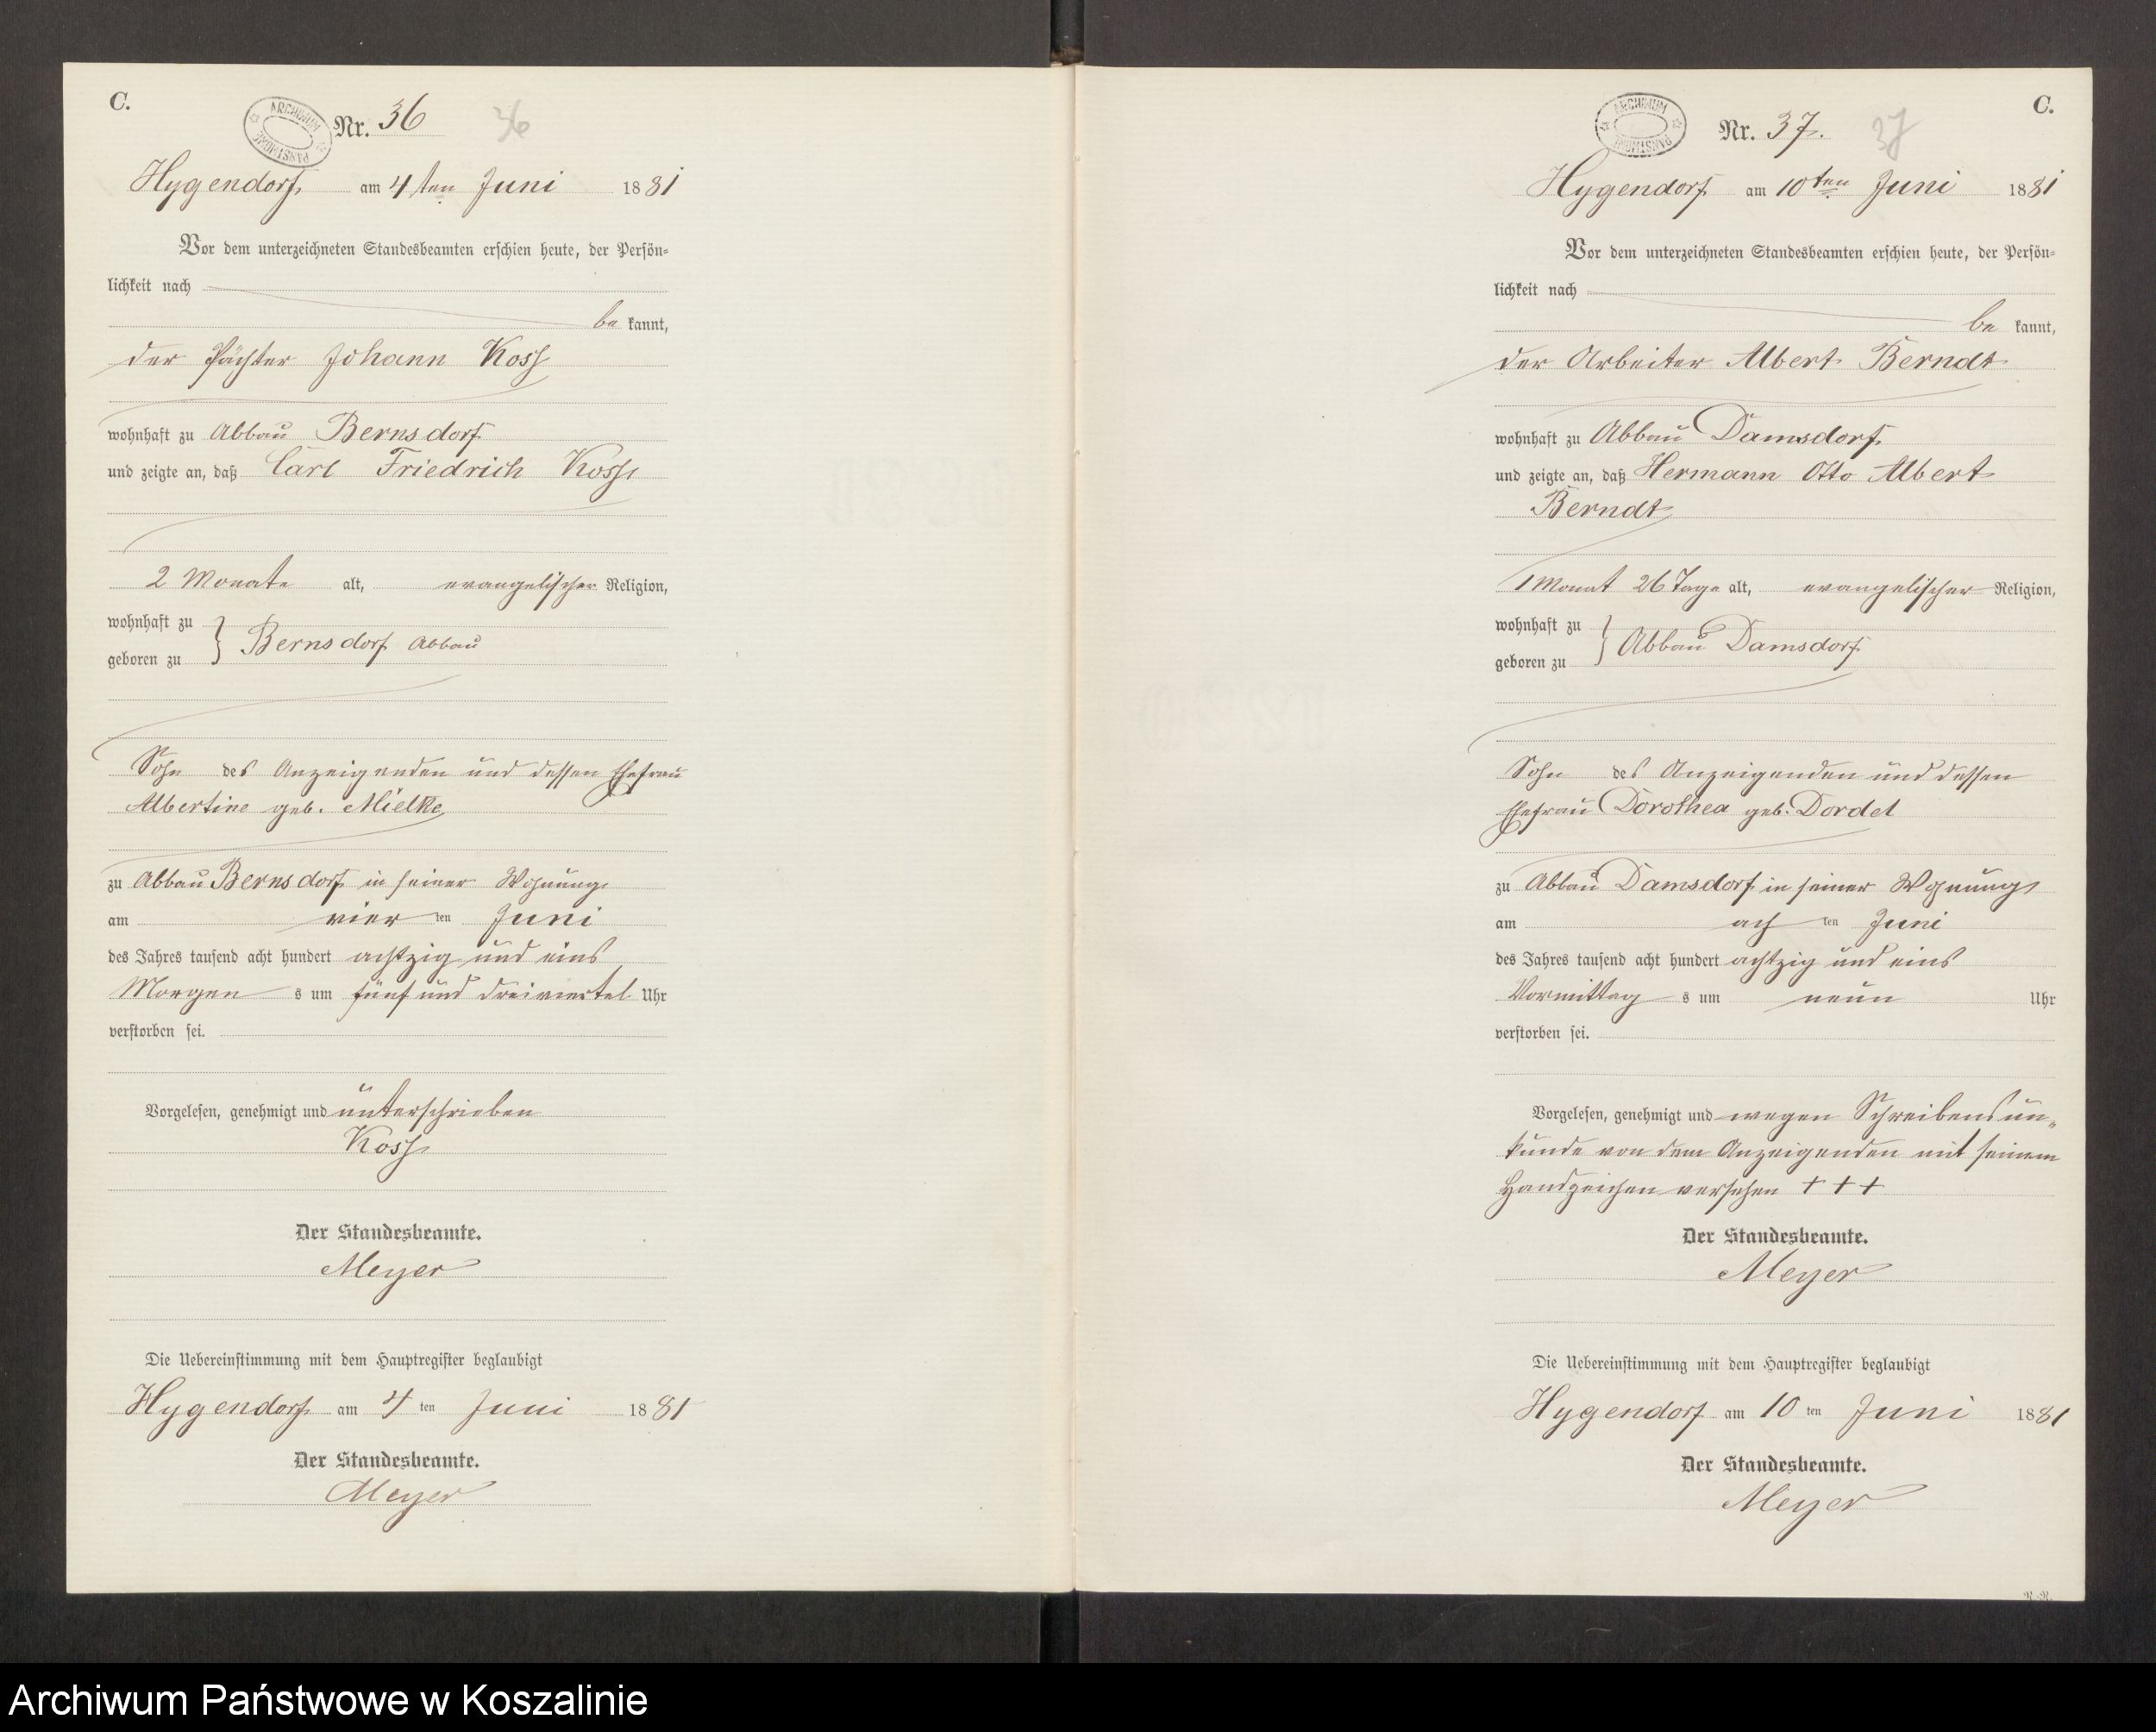 C.
ARCHIWUM PAŃSTWOWE
Nr. 36
36
Hygendorf, am 4ten Juni 1881
Vor dem unterzeichneten Standesbeamten erschien heute, der Persön=
lichkeit nach
be kannt,
der Pächter Johann Koss
wohnhaft zu Abbau Bernsdorf
und zeigte an, daß Carl Friedrich Koss,
2 Monate alt, evangelischer Religion,
wohnhaft zu
geboren zu } Bernsdorf Abbau
Sohn des Anzeigenden und dessen Ehefrau
Albertine geb. Mielke
zu Abbau Bernsdorf in seiner Wohnung,
am vier ten Juni
des Jahres tausend acht hundert achtzig und eins
Morgen s um fünf und dreiviertel Uhr
verstorben sei.
Vorgelesen, genehmigt und unterschrieben
Koss
Der Standesbeamte.
Meyer
Die Uebereinstimmung mit dem Hauptregister beglaubigt
Hygendorf am 4 ten Juni 1881
Der Standesbeamte.
Meyer
C.
ARCHIWUM PAŃSTWOWE
Nr. 37.
37
Hygendorf am 10ten Juni 1881
Vor dem unterzeichneten Standesbeamten erschien heute, der Persön=
lichkeit nach
be kannt,
der Arbeiter Albert Berndt
wohnhaft zu Abbau Damsdorf
und zeigte an, daß Hermann Otto Albert
Berndt
1 Monat 26 Tage alt, evangelischer Religion,
wohnhaft zu
geboren zu } Abbau Damsdorf
Sohn des Anzeigenden und dessen
Ehefrau Dorothea geb. Dordel
zu Abbau Damsdorf in seiner Wohnung,
am ach ten Juni
des Jahres tausend acht hundert achtzig und eins
Vormittag s um neun Uhr
verstorben sei.
Vorgelesen, genehmigt und wegen Schreibensun„
kunde von dem Anzeigenden mit seinem
Handzeichen versehen + + +
Der Standesbeamte.
Meyer
Die Uebereinstimmung mit dem Hauptregister beglaubigt
Hygendorf am 10 ten Juni 1881
Der Standesbeamte.
Meyer
Archiwum Państwowe w Koszalinie